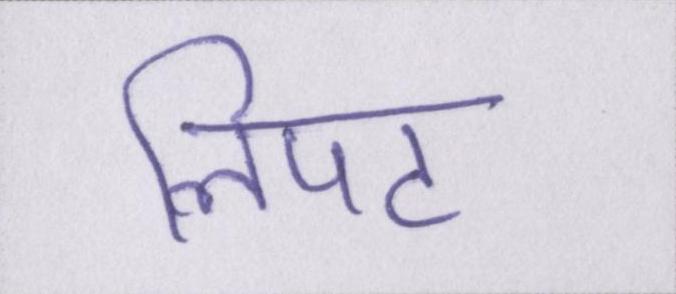 लिपट